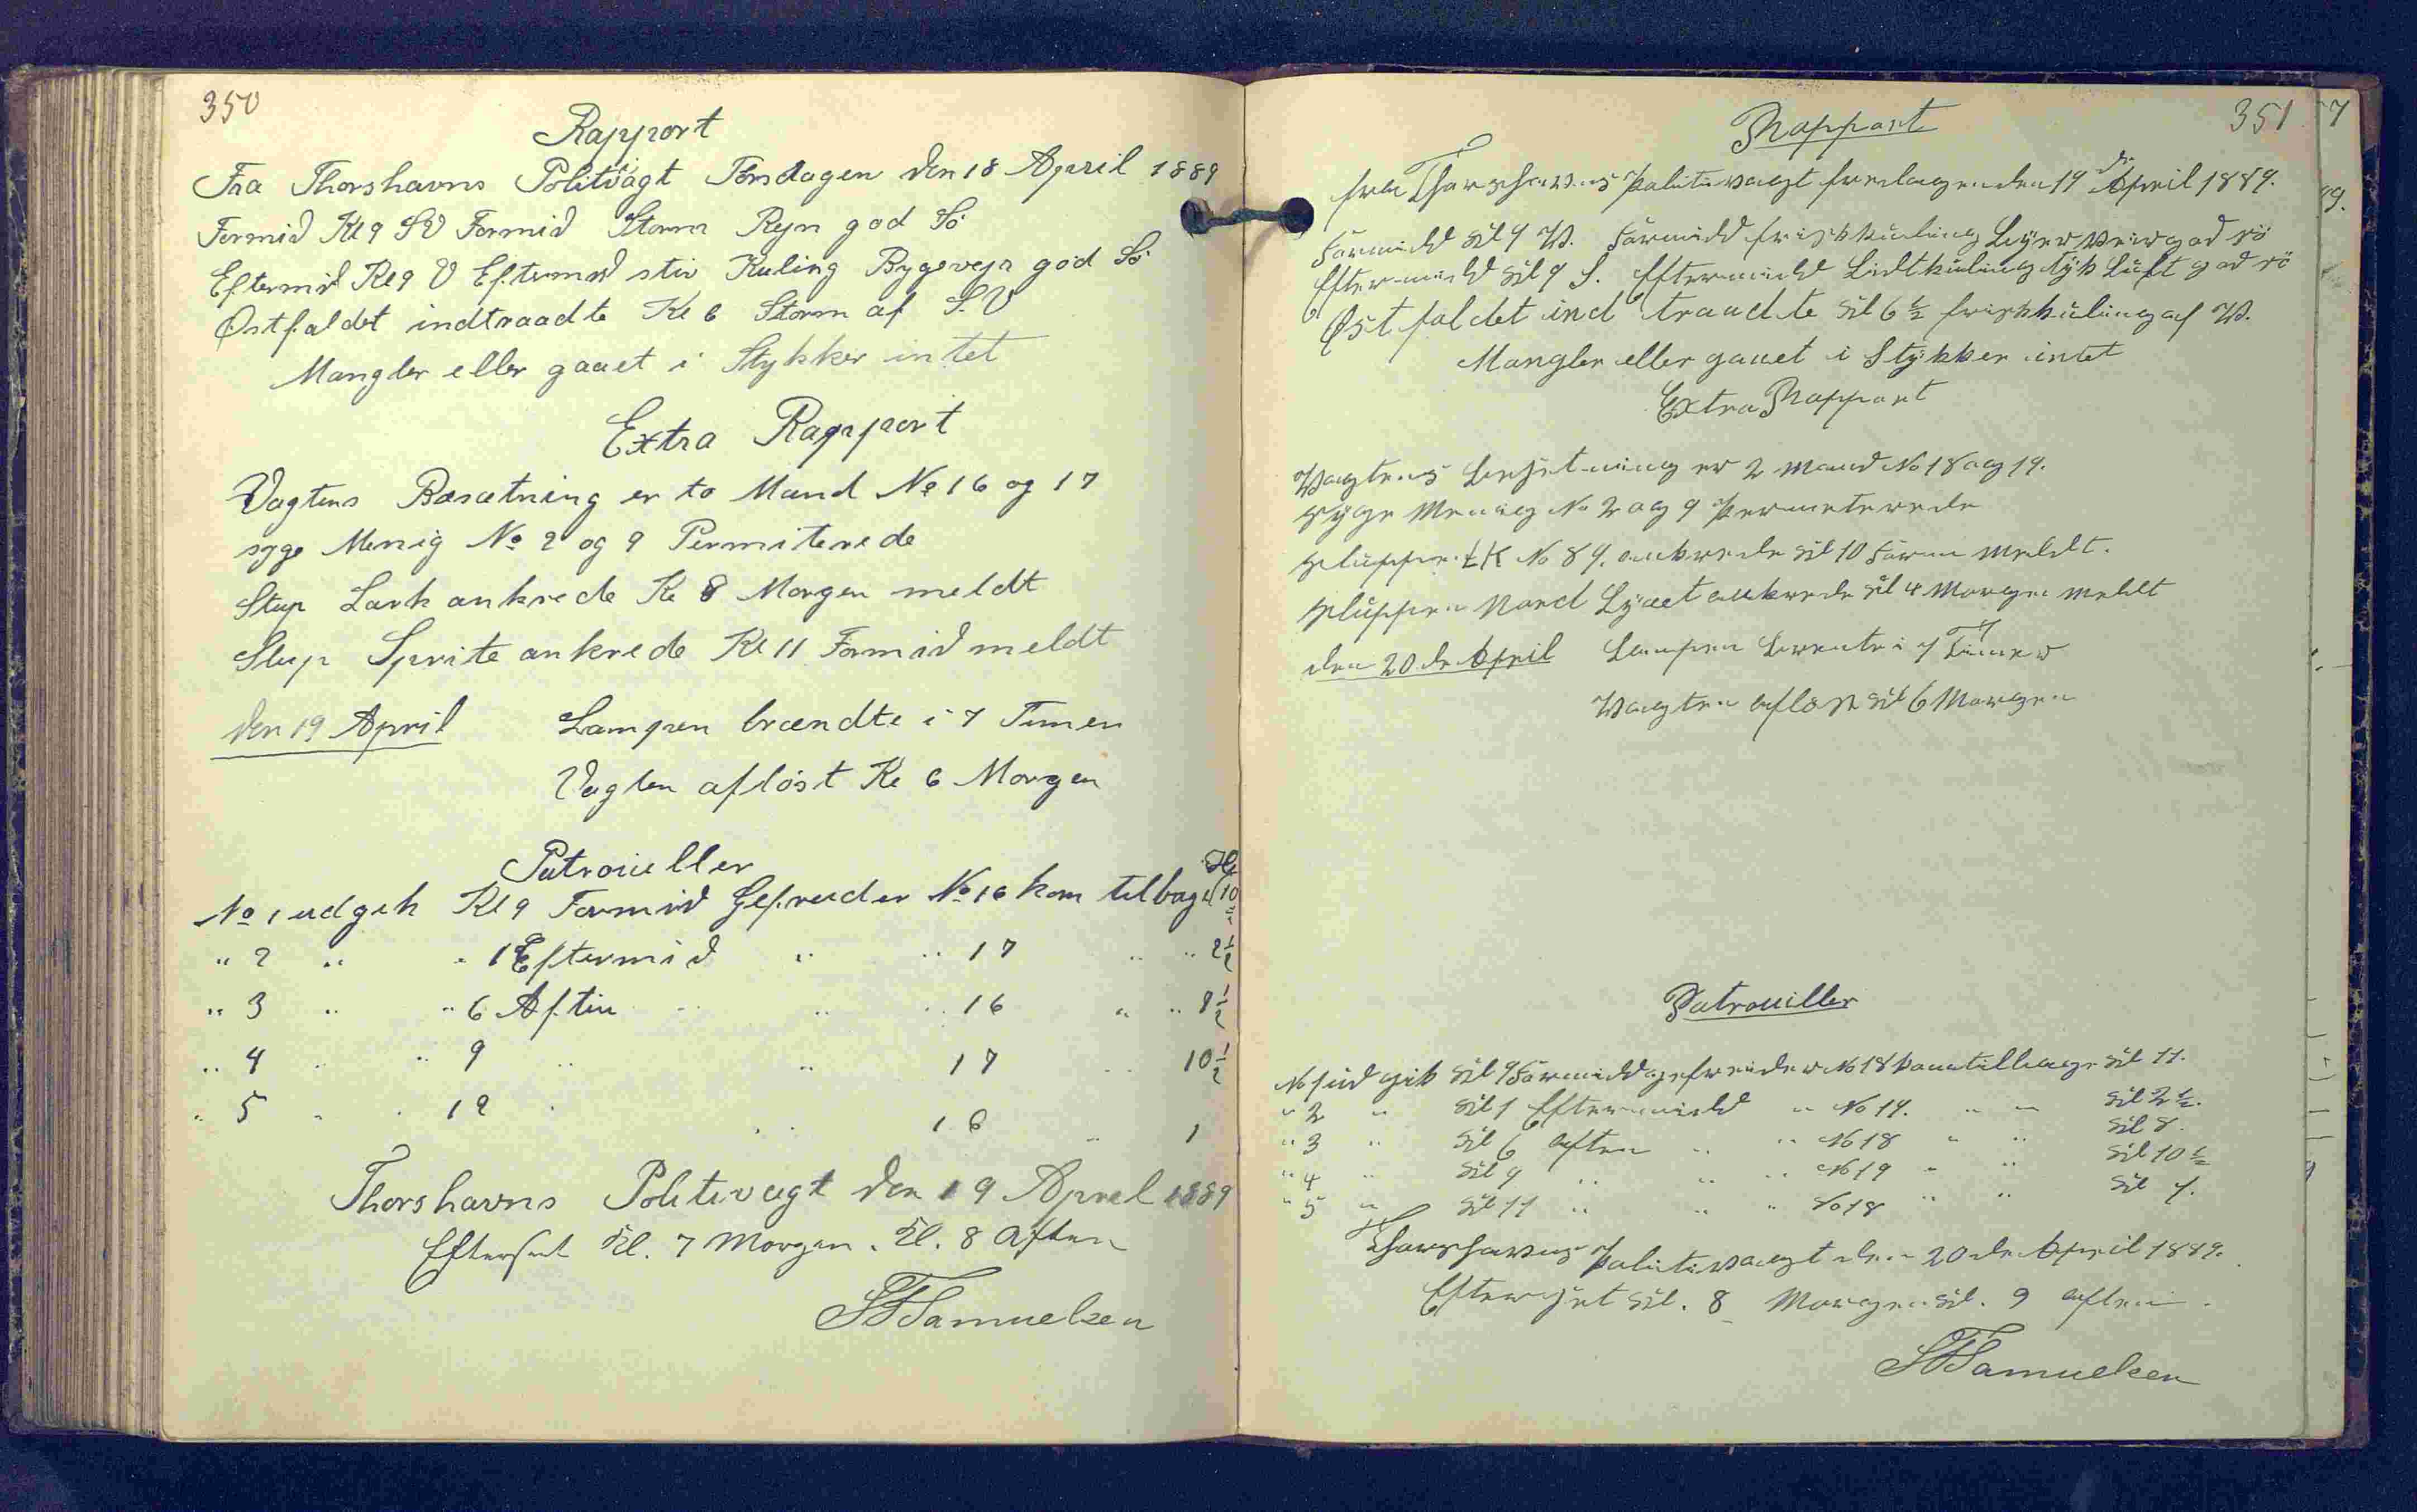 350
Rapport
Fra Thorshavns Politivagt Torsdagen den 18 April 1889
Formid Kl 9 SV Formid Storm Rejn god Sö
Eftermid Kl 9 V Eftermid stiv Kuling Bygevejr god Sö
Østfaldet indtraadte Kl 6 Storm af S.V
Mangler eller gaaet i Stykker intet
Extra Rapport
Vagtens Besætning er to Mand No 16 og 17
syge Menig No 2 og 9 Permiterede
Slup Lark ankrede Kl 8 Morgen meldt
Slup Sprite ankrede Kl 11 Formid meldt
den 19 April Lampen brændte i 7 Timer
Vagten aflöst Kl 6 Morgen
Patrouller
No 1 udgik Kl 9 Formid Gefreider No 16 kom tilbage Kl 10 1/2
" 2 " " 1 Eftermid " " 17 " " 2 1/2
" 3 " " 6 Aften " " 16 " " 8 1/2
" 4 " " 9 " " 17 " 10 1/2
" 5 " " 12 " " " 16 " 1
Thorshavns Politivagt den 19 April 1889
Efterset Kl. 7 Morgen. Kl. 8 Aften
SFSamuelsen
351
Rapport
fra Thorshavns Politivagt fredagen den 19 de April 1889.
Formidd Kl 9 V. Formidd friskkuling Bygerveir god sö
Eftermidd Kl 9 S. Eftermidd Lidtkuling tyk Luft god sö
Østfaldet indtraadte Kl 6 1/2 friskkuling af V.
Mangler eller gaaet i Stykker intet
Extra Rapport
Vagtens besetning er 2 Mand No 18 og 19.
syge Menig No 2 og 9 Permeterede
Sluppen LK No 89. ankrede Kl 10 Form meldt.
Sluppen Nord Lyset ankrede Kl 4 Morgen meldt
den 20 de April Lampen brente i 7 Timer
Vagten aflöst Kl 6 Morgen
Patrouiller
No 1 udgik Kl 9 Formidd gefreider No 18 kom tilbage Kl 11.
" 2 " Kl 1 Eftermidd " No 19. " " Kl 2 1/2.
" 3 " Kl 6 aften " " No 18 " " Kl 8.
" 4 " Kl 9 " " " No 19 " " Kl 10 1/2
" 5 " Kl 11 " " " No 18 " " Kl 1.
Thorshavns Politivagt den 20 de April 1889.
Efterset Kl. 8 Morgen Kl. 9 aften.
SFSamuelsen